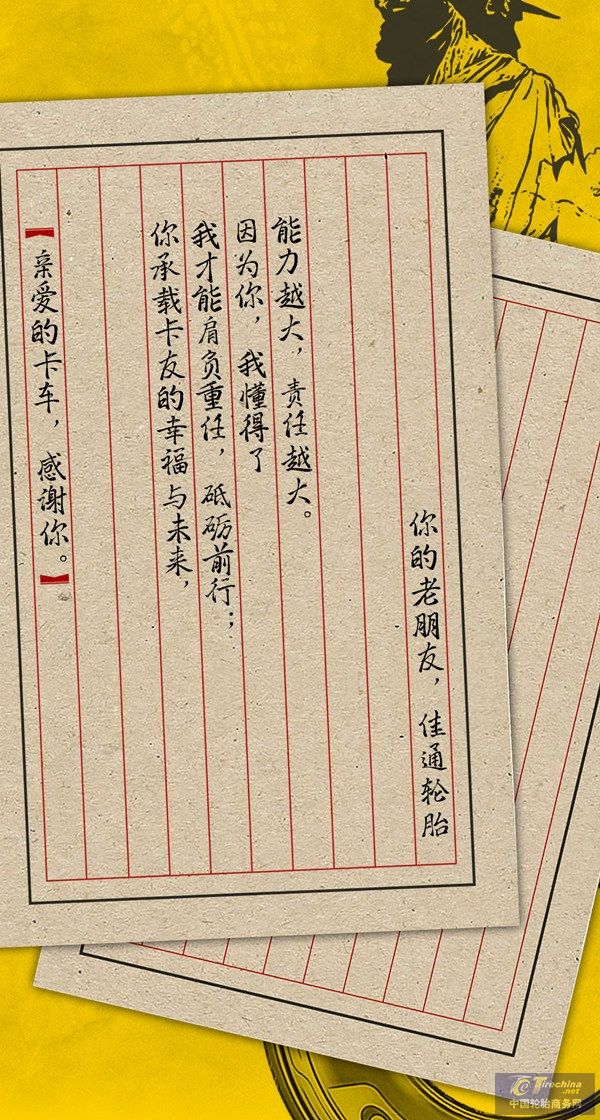 【亲爱的卡车，感谢你。】
你承载卡友的幸福与未来，
我才能肩负重任，砥砺前行；
因为你，我懂得了
能力越大，责任越大。
你的老朋友，佳通轮胎
Tirechina
.net
中国轮胎商务网